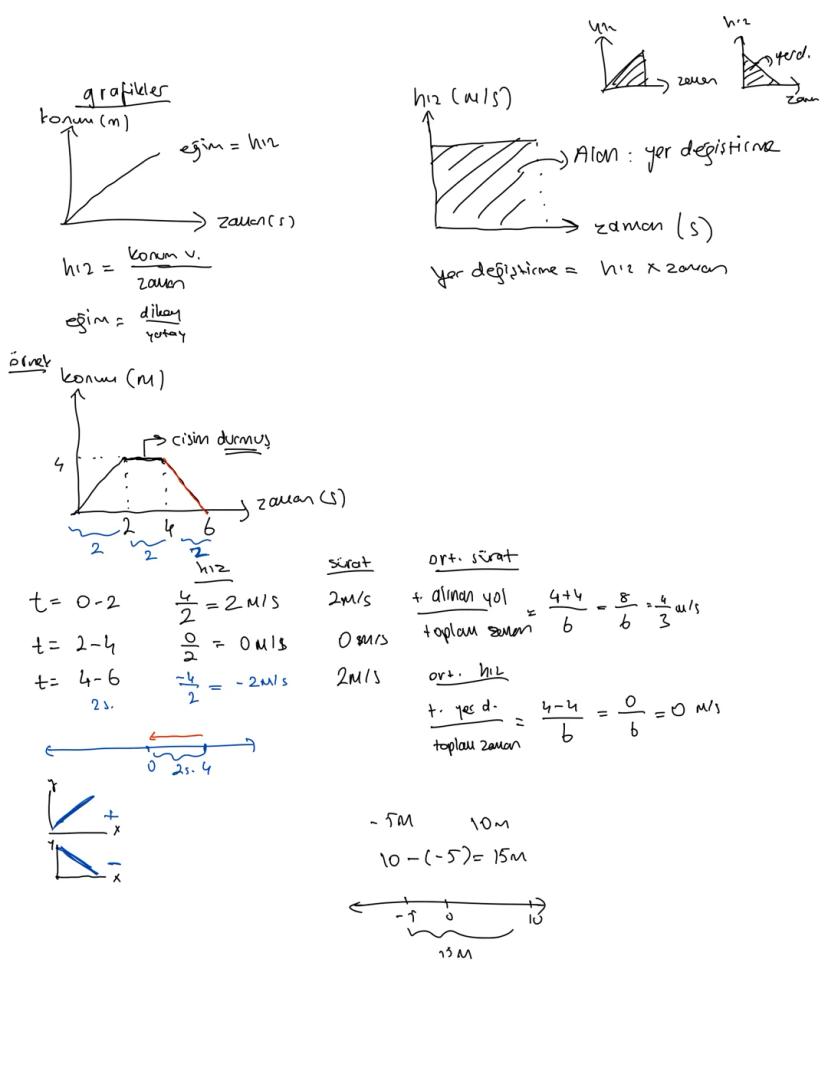 grafikler
konum (m)
eğim = hız
zaman(s)
hız = konum v. / zaman
eğim = dikey / yatay
hız
zaman
hız
yerd.
zaman
hız (m/s)
Alan : yer değiştirme
zaman (s)
yer değiştirme = hız x zaman
örnek
konum (m)
cisim durmuş
4
zaman (s)
2 4 6
2 2 2
hız sürat ort. sürat
t = 0-2 4/2 = 2 m/s 2m/s t. alınan yol / toplam zaman = 4+4 / 6 = 8/6 = 4/3 m/s
t = 2-4 0/2 = 0 m/s 0 m/s
t = 4-6 -4/2 = -2 m/s 2m/s ort. hız
2s.
t. yer d. / toplam zaman = 4-4 / 6 = 0/6 = 0 m/s
0 2s. 4
y
+
x
y
-
x
-5m 10m
10-(-5)= 15m
-5 0 10
15m